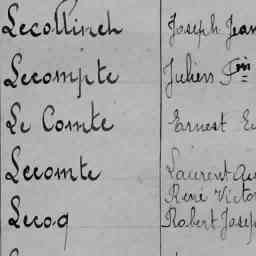 Lecollinet Joseph Jean
Lecompte Julien Fin
Le Comte Ernest
Lecomte Laurent
René Victor
Lecoq Robert Joseph